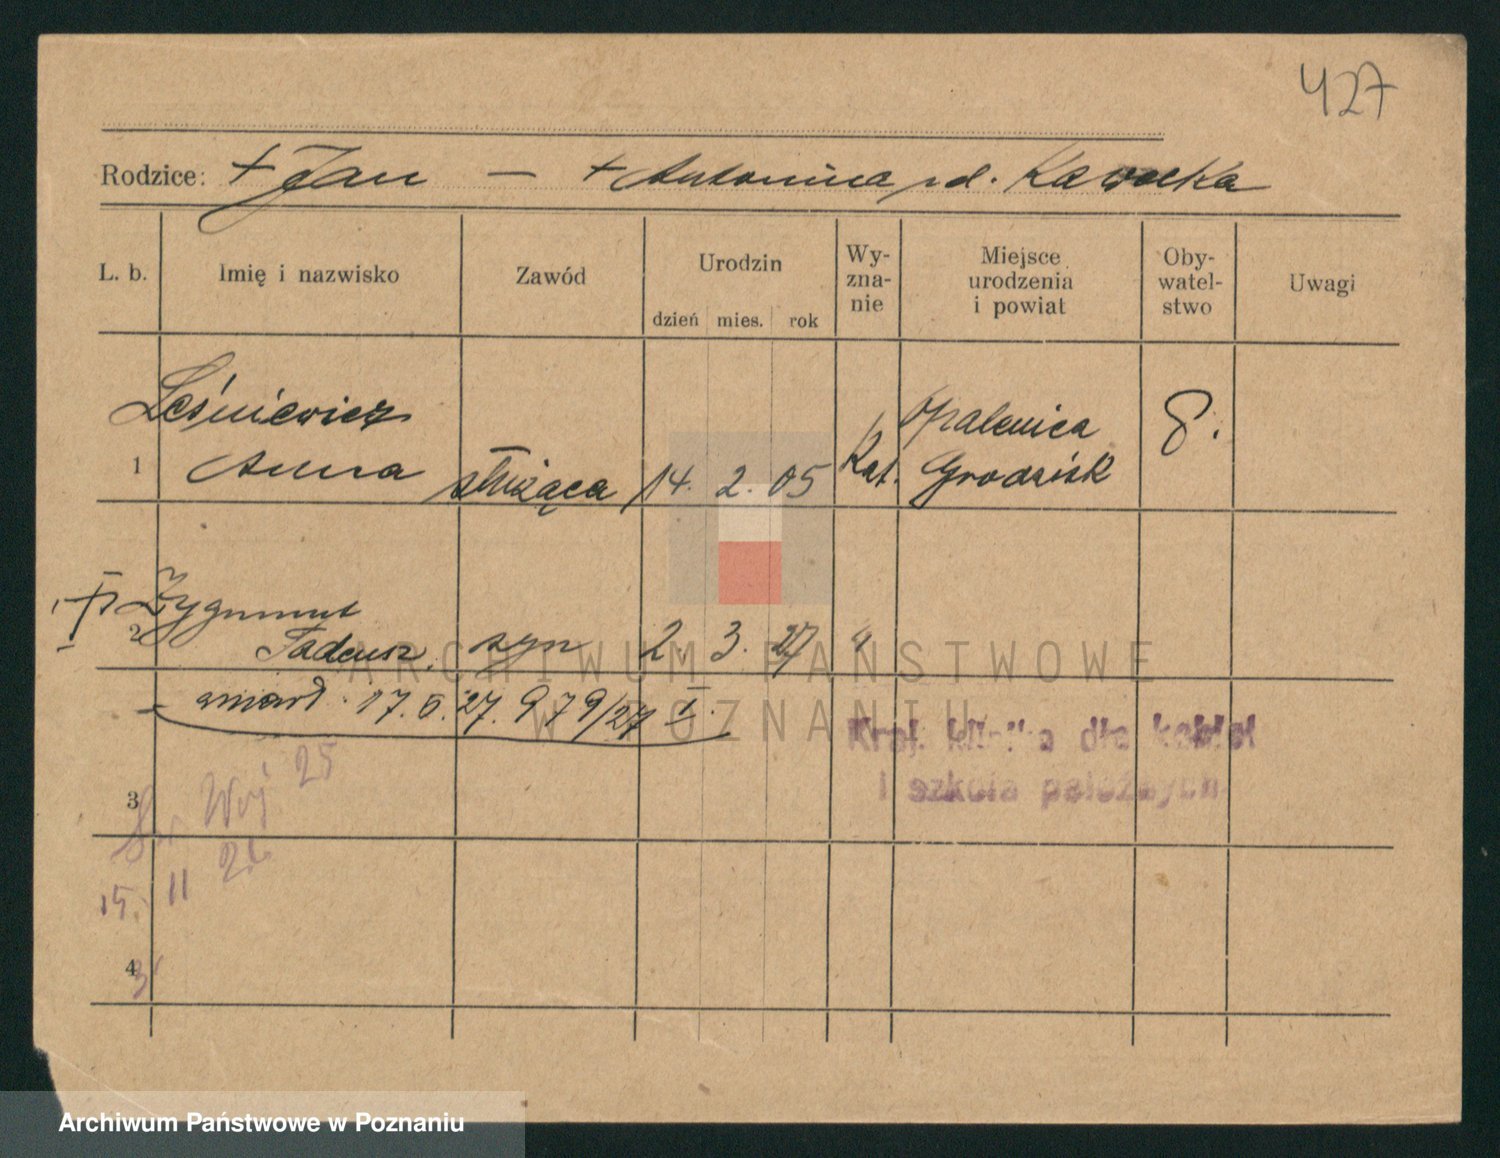 427
Rodzice: + Jan — + Antonina rd. Kawecka
L. b. Imię i nazwisko Zawód Urodzin dzień mies. rok Wy-zna-nie Miejsce urodzenia i powiat Oby-watel-stwo Uwagi
Leśniewicz Opalenica
1 Anna służąca 14. 2. 05 Kat. Grodzisk P.
Zygmunt
2 Tadeusz syn 2. 3. 27 "
zmarł 17. 6. 27. 979/27 I.
Kraj. klinika dla kobiet
i szkoła położnych
3 Wój 25
15. 11 26
4
ARCHIWUM PAŃSTWOWE
W POZNANIU
Archiwum Państwowe w Poznaniu